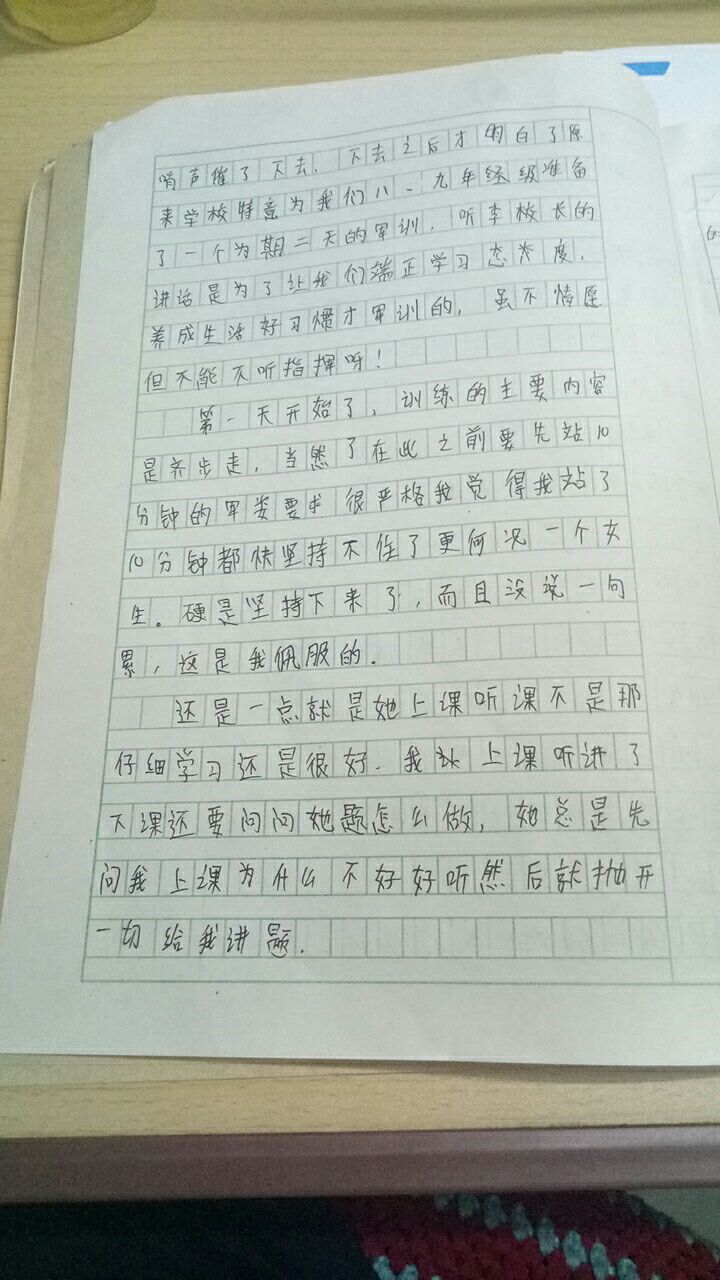 哨声催了下去,下去之后才明白了原
来学校特意为我们八、九年经级准备
了一个为期二天的军训,听李校长的
讲话是为了让我们端正学习态为度,
养成生活好习惯才军训的,虽不情愿
但不能不听指挥呀!
第一天开始了,训练的主要内容
是齐步走,当然了在此之前要先站10
分钟的军姿要求很严格我觉得我站了
10分钟都快坚持不住了更何况一个女
生。硬是坚持下来了,而且没说一句
累,这是我佩服的.
还是一点就是她上课听课不是那
仔细学习还是很好.我 上课听讲了
下课还要问问她题怎么做,她总是先
问我上课为什么不好好听然后就抛开
一切给我讲题.